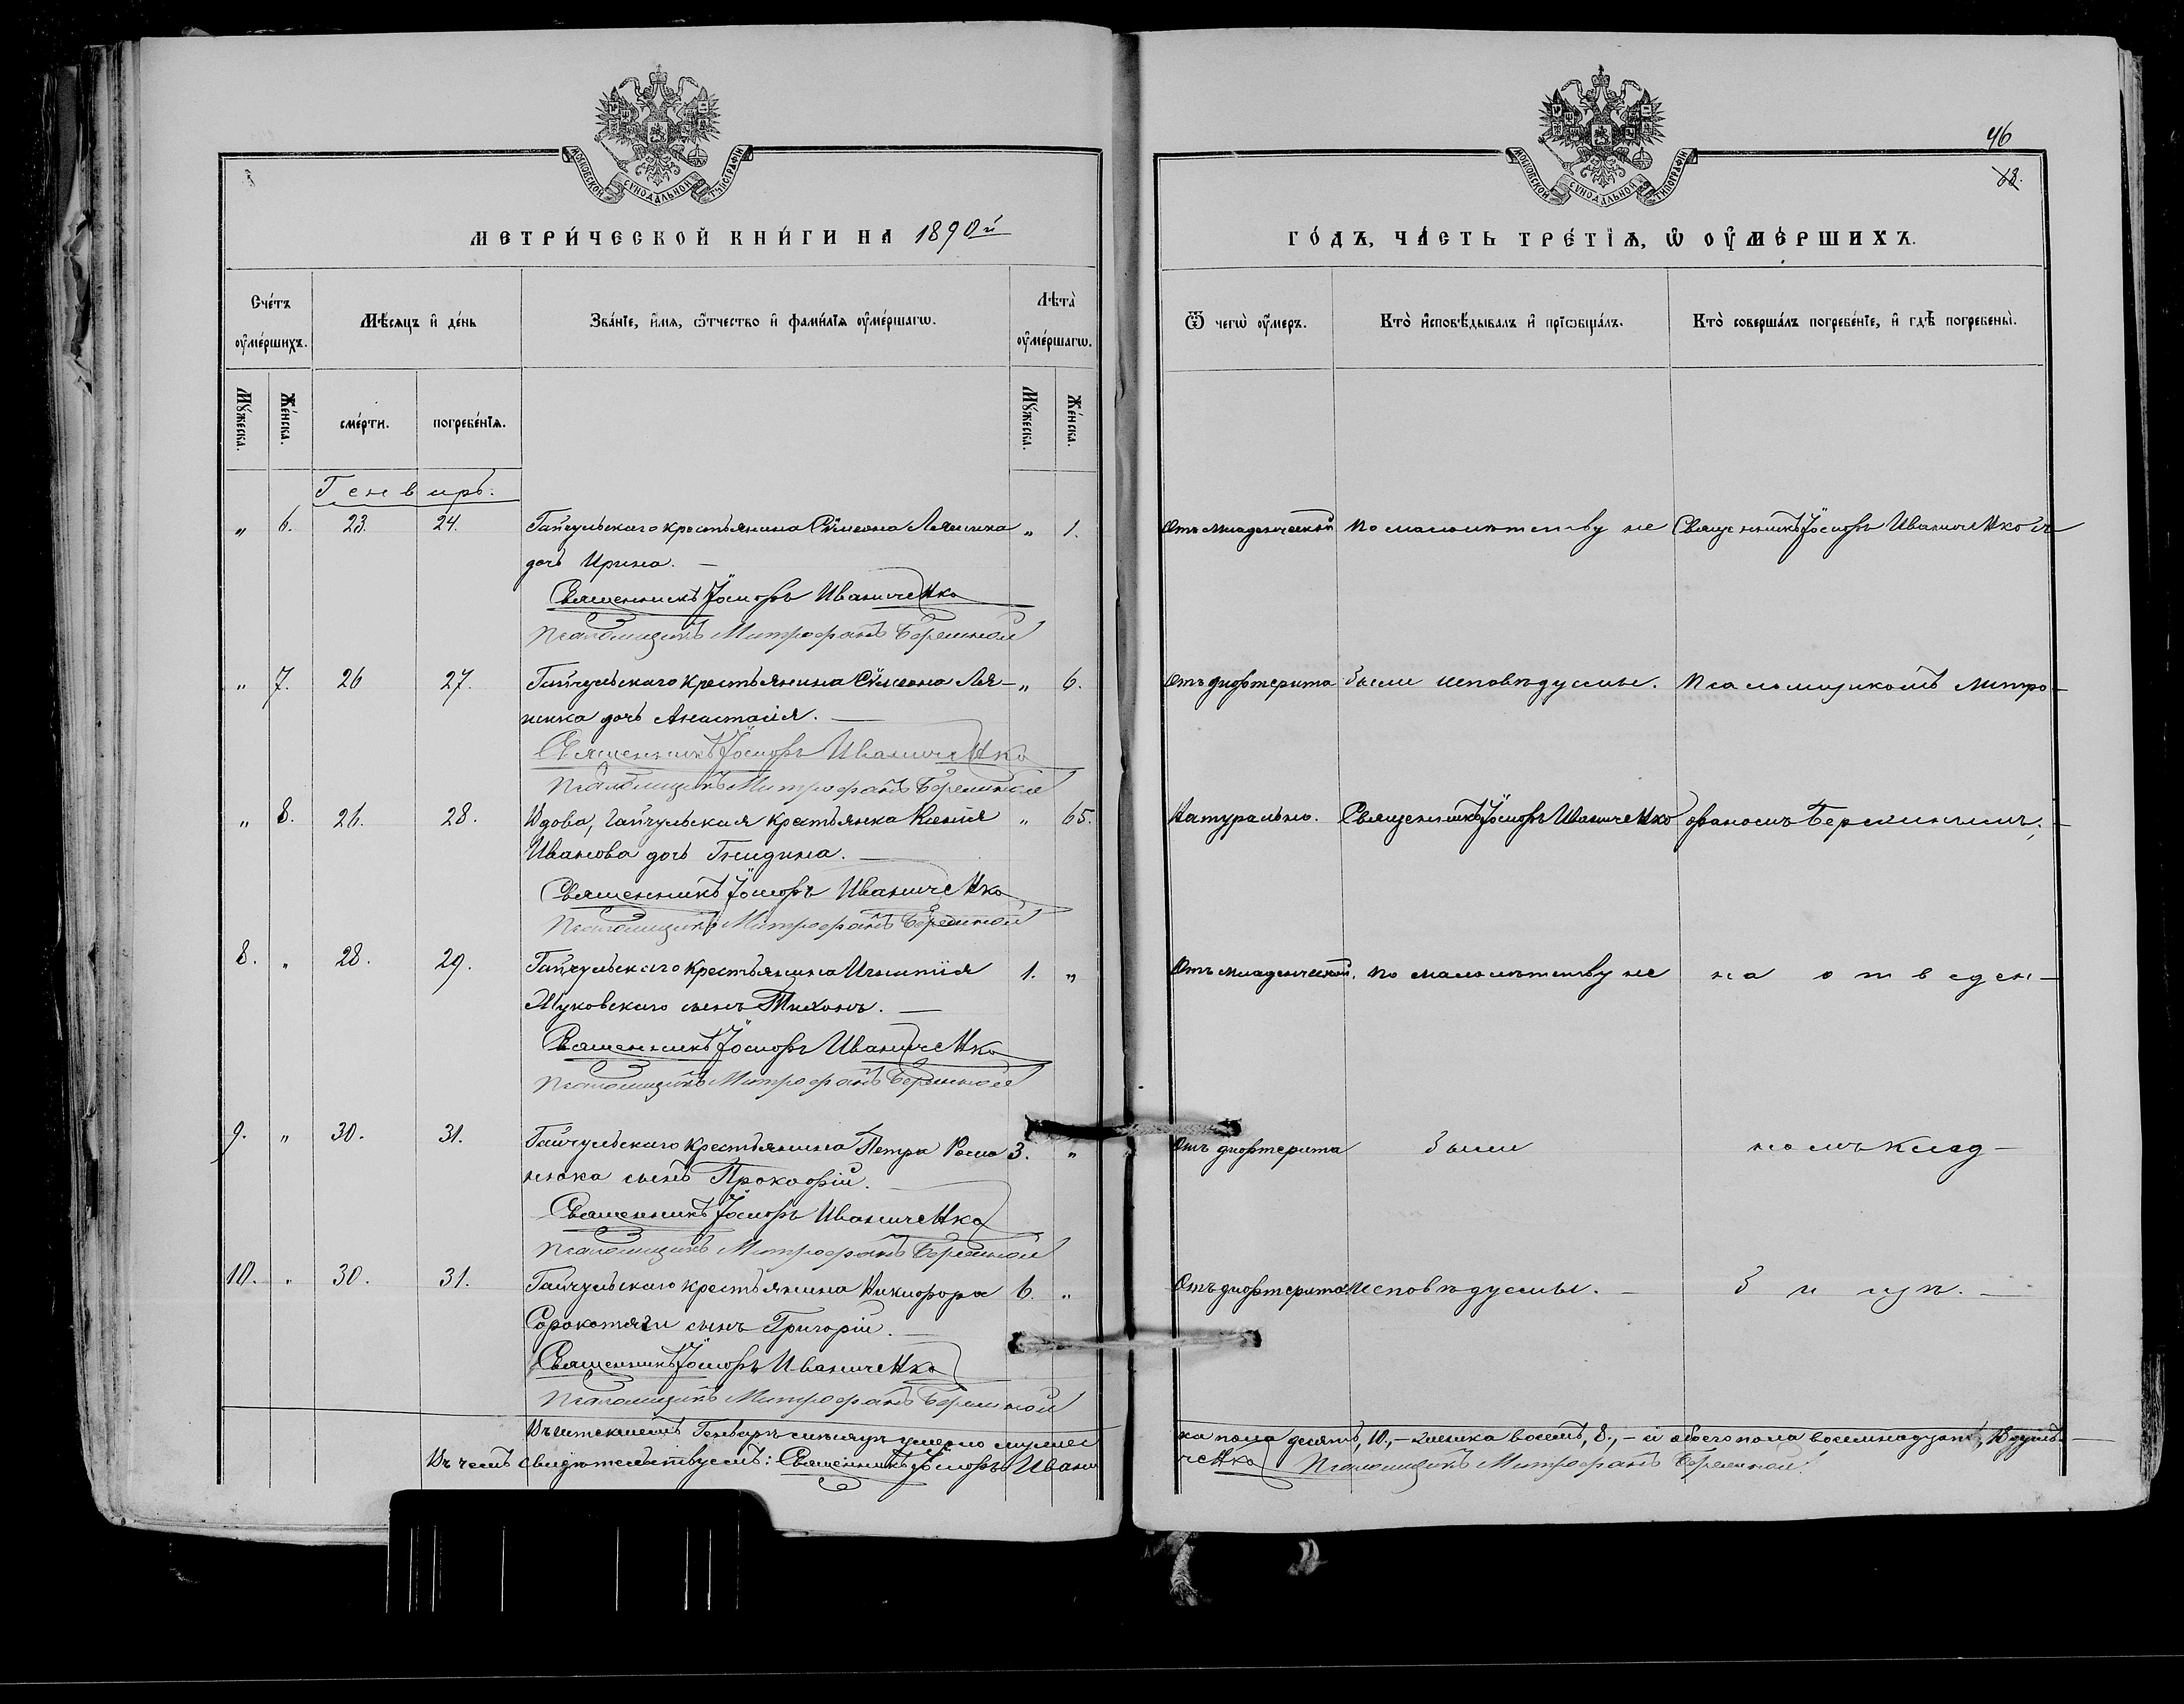 МОСКОВСКОЙ СѴНОДАЛЬНОЙ ТИПОГРАФІИ
МЕТРИ́ЧЕСКОЙ КНИ́ГИ НА 1890й
Сче́тъ оу҆ме́ршихъ.
Мѣ́сяцъ и҆ де́нь
Зва́нїе, и҆́мя, ѻ҆́тчество и҆ фами́лїя оу҆ме́ршагѡ.
Лѣта̀ оу҆ме́ршагѡ.
Мꙋ́жеска.
Же́нска.
сме́рти.
погребе́нїѧ.
Мꙋ́жеска.
Же́нска.
Генварь.
„ 6. 23. 24. Гайчульскаго крестьянина Сѵмеона Ляшика „ 1.
дочь Ирина. —
Священникъ Іосифъ Иваниченко
Псаломщикъ Митрофанъ Бережной
„ 7. 26 27. Гайчульскаго крестьянина Сѵмеона Ля- „ 6.
шика дочь Анастасія. —
Священникъ Іосифъ Иваниченко
Псаломщикъ Митрофанъ Бережной
„ 8. 26. 28. Вдова, Гайчульская крестьянка Ксенія „ 65.
Иванова дочь Гнидина. —
Священникъ Іосифъ Иваниченко
Псаломщикъ Митрофанъ Бережной
8. „ 28. 29. Гайчульскаго крестьянина Игнатія 1. „
Жуковскаго сынъ Тихонъ. —
Священникъ Іосифъ Иваниченко
Псаломщикъ Митрофанъ Бережной
9. „ 30. 31. Гайчульскаго крестьянина Петра Рома 3. „
нюка сынъ Прокофій.
Священникъ Іосифъ Иваниченко
Псаломщикъ Митрофанъ Бережной
10. „ 30. 31. Гайчульскаго крестьянина Никифора 6. „
Сорокотяги сынъ Григорій. —
Священникъ Іосифъ Иваниченко
Псаломщикъ Митрофанъ Бережной
Въ истекшемъ Генварѣ мѣсяцѣ умерло мужес
Въ чемъ свидѣтельствуемъ: Священникъ Іосифъ Ивани
МОСКОВСКОЙ СѴНОДАЛЬНОЙ ТИПОГРАФІИ
46
ГО́ДЪ, ЧА́СТЬ ТРЕ́ТЇѦ, Ѡ҆ ОУ҆МЕ́РШИХЪ.
Ѿ чегѡ̀ оу҆́меръ.
Кто̀ и҆сповѣ́дывалъ и҆ прїѡбща́лъ.
Кто̀ соверша́лъ погребе́нїе, и҆ гдѣ̀ погребены̀.
Отъ младенческой по малолѣтству не Священникъ Іосифъ Иваниченко съ
Отъ дифтерита были исповѣдуемы. Псаломщикомъ Митро-
Натурально. Священникъ Іосифъ Иваниченко фаномъ Бережнымъ, —
Отъ младенческой. по малолѣтству не на отведен-
Отъ дифтерита были номъ клад-
Отъ дифтерита исповѣдуемы. — бищѣ. —
ка пола десять, 10, — женска восемь, 8, — и обоего пола восемнадцать, 18 душъ. —
ченко Псаломщикъ Митрофанъ Бережной.